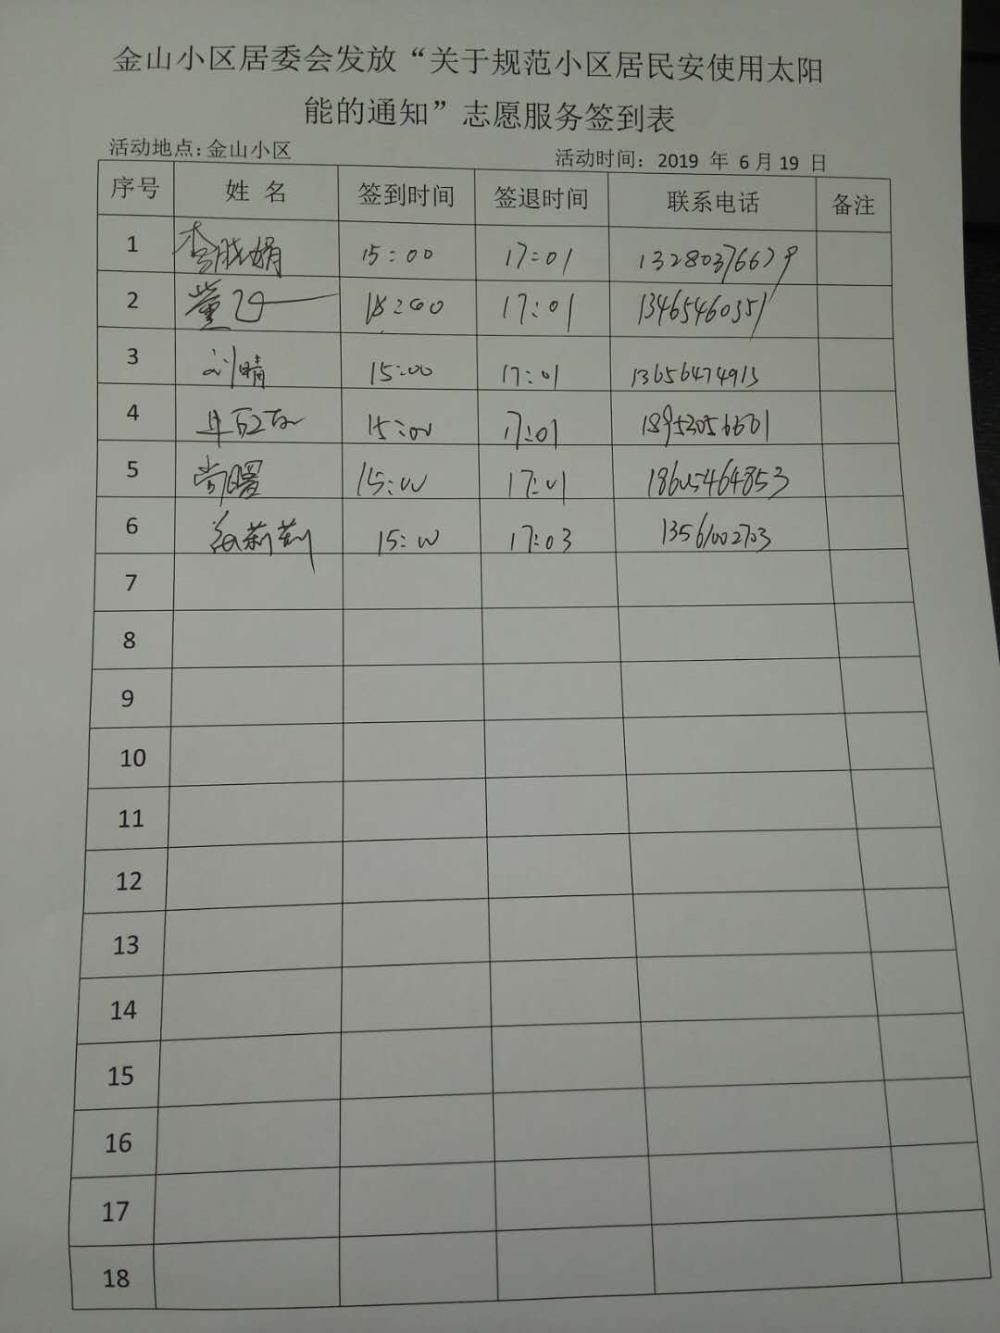 金山小区居委会发放“关于规范小区居民安使用太阳
能的通知”志愿服务签到表
活动地点:金山小区 活动时间: 2019 年 6月 19 日
序号 姓 名 签到时间 签退时间 联系电话 备注
1 李晓娟 15:00 17:01 13280376679
2 董 17:01 13465460351
3 刘晴 15:00 17:01 13656474913
4 15:00 17:01 18953056601
5 尚曙 15:00 17:01 18605464853
6 张莉莉 15:00 17:03 13561002703
7
8
9
10
11
12
13
14
15
16
17
18